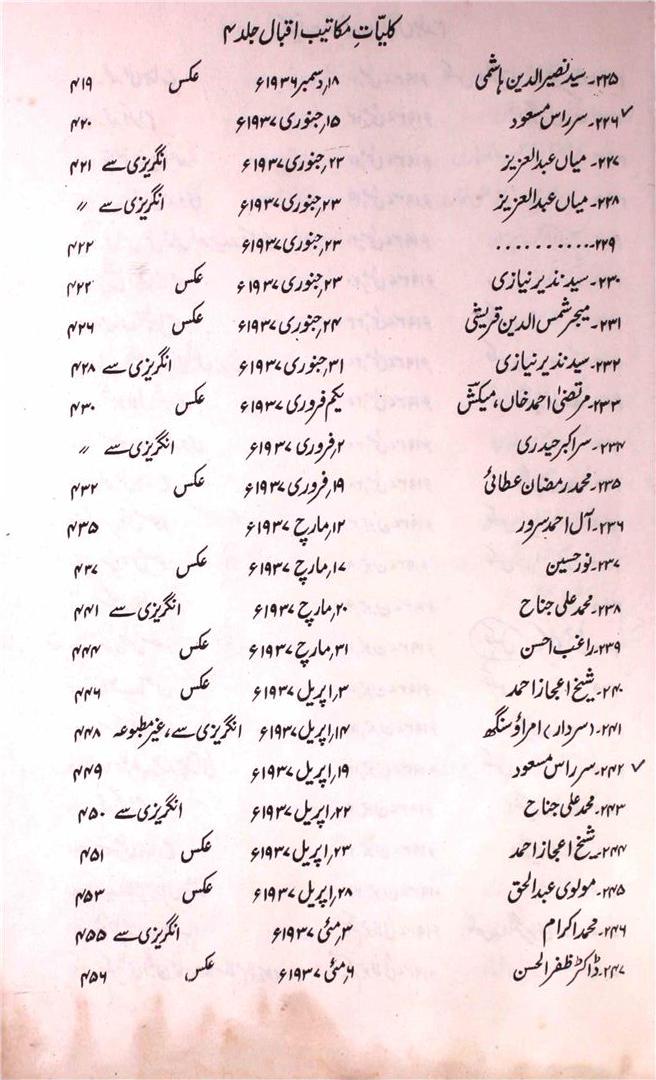 کلیّاتِ مکاتیب اقبال جلد ۴
۲۲۵۔ سید نصیر الدین ہاشمی ۱۸؍ دسمبر ۱۹۳۶ء عکس ۴۱۹
✓۲۲۶۔ سر راس مسعود ۱۵؍ جنوری ۱۹۳۷ء ۴۲۰
۲۲۷۔ میاں عبدالعزیز ۲۲؍ جنوری ۱۹۳۷ء انگریزی سے ۴۲۱
۲۲۸۔ میاں عبدالعزیز ۲۳؍ جنوری ۱۹۳۷ء انگریزی سے ״
۲۲۹۔ .......... ۲۳؍ جنوری ۱۹۳۷ء ۴۲۲
۲۳۰۔ سید نذیر نیازی ۲۳؍ جنوری ۱۹۳۷ء عکس ۴۲۲
۲۳۱۔ میجر شمس الدین قریشی ۲۴؍ جنوری ۱۹۳۷ء عکس ۴۲۶
۲۳۲۔ سید نذیر نیازی ۳۱؍ جنوری ۱۹۳۷ء انگریزی سے ۴۲۸
۲۳۳۔ مرتضیٰ احمد خاں، میکش یکم فروری ۱۹۳۷ء عکس ۴۳۰
۲۳۴۔ سر اکبر حیدری ۲؍ فروری ۱۹۳۷ء انگریزی سے ״
۲۳۵۔ محمد رمضان عطائی ۱۹؍ فروری ۱۹۳۷ء عکس ۴۳۲
۲۳۶۔ آل احمد سرور ۱۲؍ مارچ ۱۹۳۷ء ۴۳۵
۲۳۷۔ نور حسین ۱۷؍ مارچ ۱۹۳۷ء عکس ۴۳۷
۲۳۸۔ محمد علی جناح ۲۰؍ مارچ ۱۹۳۷ء انگریزی سے ۴۴۱
۲۳۹۔ راغب احسن ۳۱؍ مارچ ۱۹۳۷ء عکس ۴۴۴
۲۴۰۔ شیخ اعجاز احمد ۳؍ اپریل ۱۹۳۷ء عکس ۴۴۶
۲۴۱۔ (سردار) امراؤ سنگھ ۱۴؍ اپریل ۱۹۳۷ء انگریزی سے، غیر مطبوعہ ۴۴۸
✓ ۲۴۲۔ سر راس مسعود ۱۹؍ اپریل ۱۹۳۷ء ۴۴۹
۲۴۳۔ محمد علی جناح ۲۲؍ اپریل ۱۹۳۷ء انگریزی سے ۴۵۰
۲۴۴۔ شیخ اعجاز احمد ۲۳؍ اپریل ۱۹۳۷ء عکس ۴۵۱
۲۴۵۔ مولوی عبدالحق ۲۸؍ اپریل ۱۹۳۷ء عکس ۴۵۳
۲۴۶۔ محمد اکرام ۳؍ مئی ۱۹۳۷ء انگریزی سے ۴۵۵
۲۴۷۔ ڈاکٹر ظفر الحسن ۶؍ مئی ۱۹۳۷ء عکس ۴۵۶